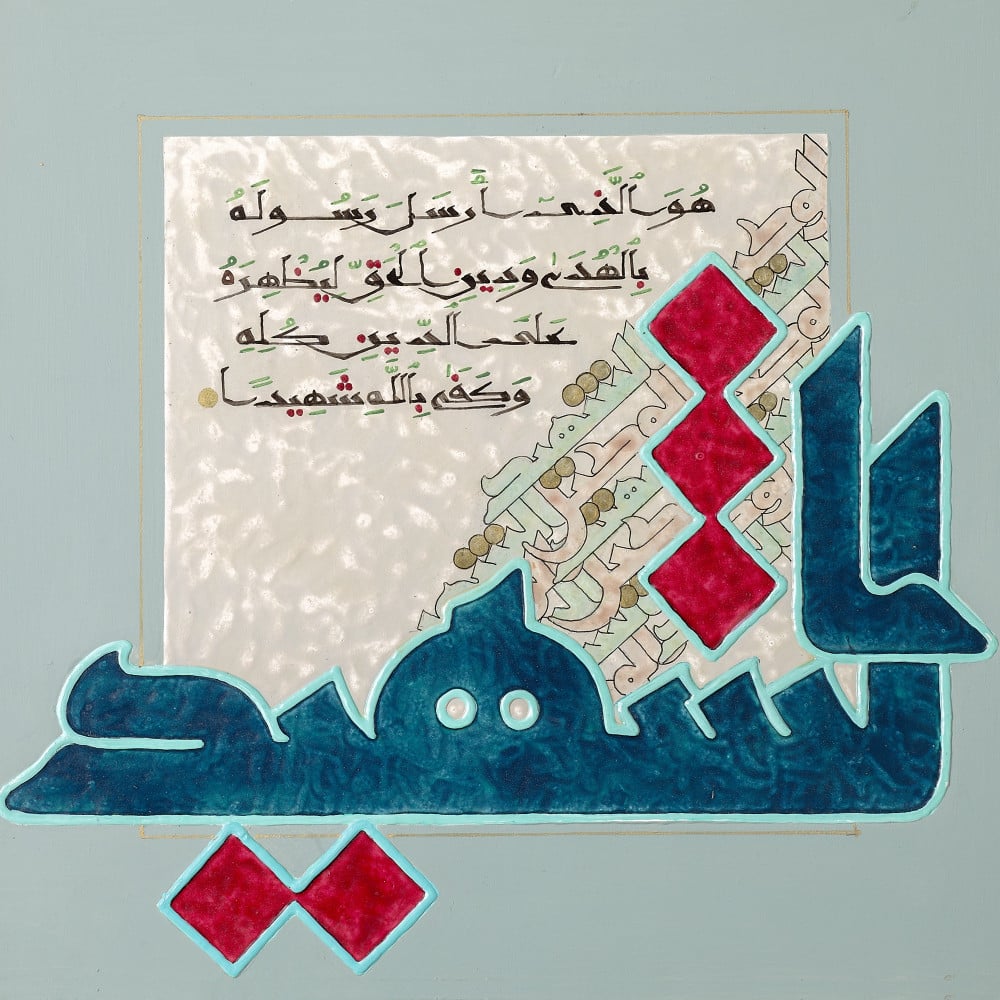 هُوَ الَّذِى أَرْسَلَ رَسُولَهُ
بِالْهُدَىٰ وَدِينِ الْحَقِّ لِيُظْهِرَهُ
عَلَى الدِّينِ كُلِّهِ
وَكَفَىٰ بِاللَّهِ شَهِيدًا
الشهيد